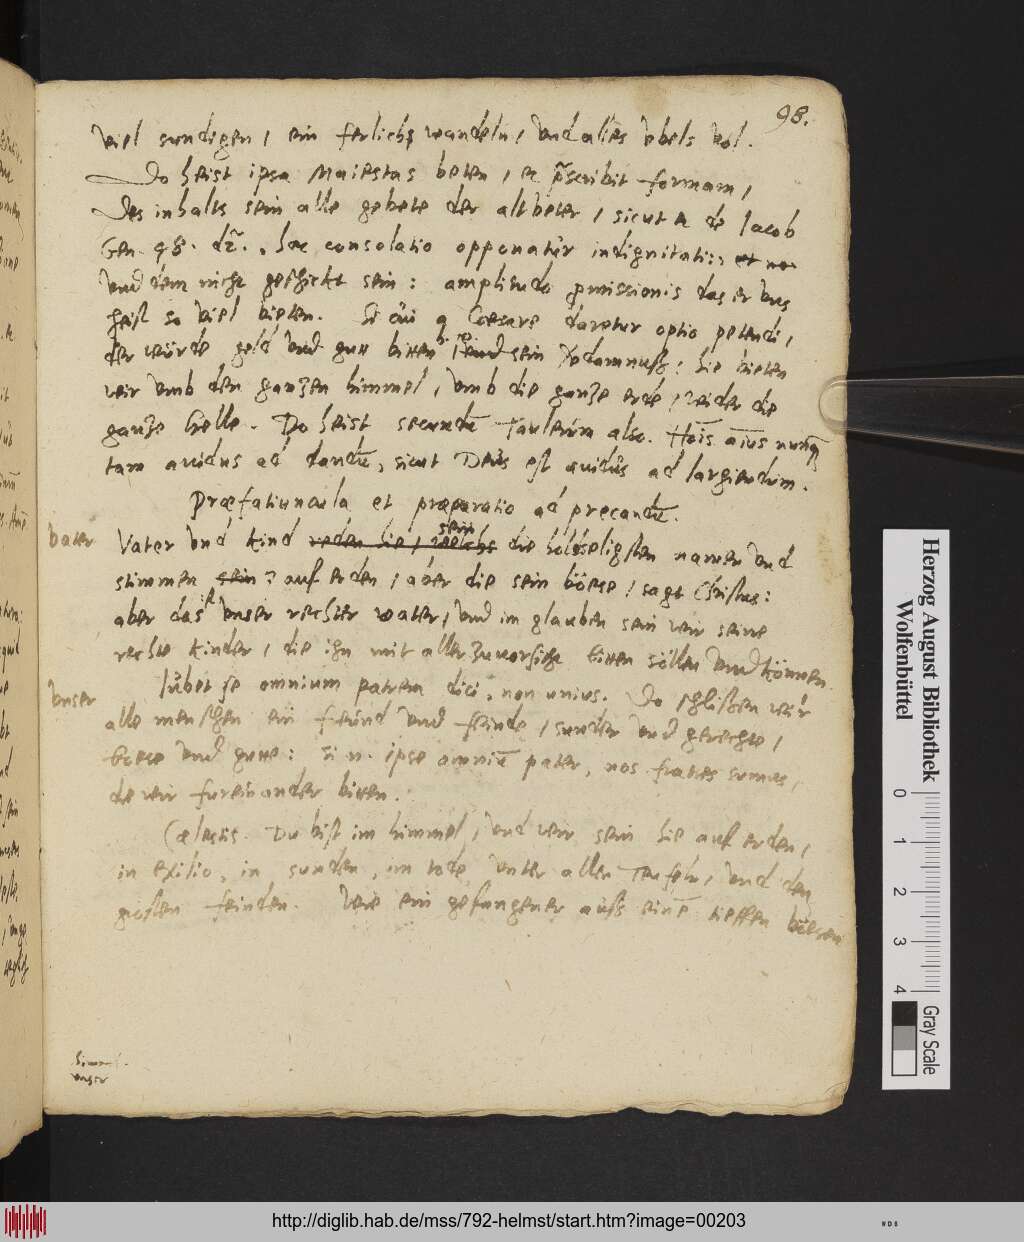 98.
viel sundigen, ein ferlichs wandeln, vnd alles vbels vol.
Do heist ipsa Maiestas beten, et p̃scribit formam,
Des inhalts sein alle gebete der altveter, sicut de Iacob
Gen. 48. dr̃. hæc consolatio opponatur indignitati:, et no
vnd dem nicht geschickt sein: amplitudo p̱missionis das er vns
heist so viel bieten. Si cui a Cæsare daretur optio petendi,
der würde geld vnd gutt bitten, sein Vodamnuß: hie bieten
wir vmb den ganzen himmel, vmb die ganze erde, wider die
ganze helle. Do heist secundũ Taulerum also. Hoĩs aĩus nunq̃
tam auidus ad dandũ, sicut Deus est auidus ad largiendum.
Præfatiuncula et præparatio ad precandũ.
Vater Vater vnd kind reden hie, welchs sein die holdseligsten namen vnd
stimmen sein: auf erden, aber die sein böese, sagt Christus:
aber das ist vnser rechter vater, vnd im glauben sein wir seine
rechte kinder, die ihn mit aller zuuorsicht bitten söllen vnd können.
vnser Iubet se omnium patrem dici, non unius. Do schlißen wir
alle menschen ein freund vnd feinde, sunder vnd gerechte,
böese vnd gutte: Si n. ipse omniũ pater, nos fratres sumus,
de wir fureinander bitten.
Cælestis. Du bist im himmel, vnd wir sein hie auf erden,
in exilio, in sunden, im tode, vnter allen Teufeln, vnd den
grösten feinden. Wie ein gefangener auß einẽ tieffen bösen
vnser
Herzog August Bibliothek
Wolfenbüttel
0 1 2 3 4
Gray Scale
http://diglib.hab.de/mss/792-helmst/start.htm?image=00203